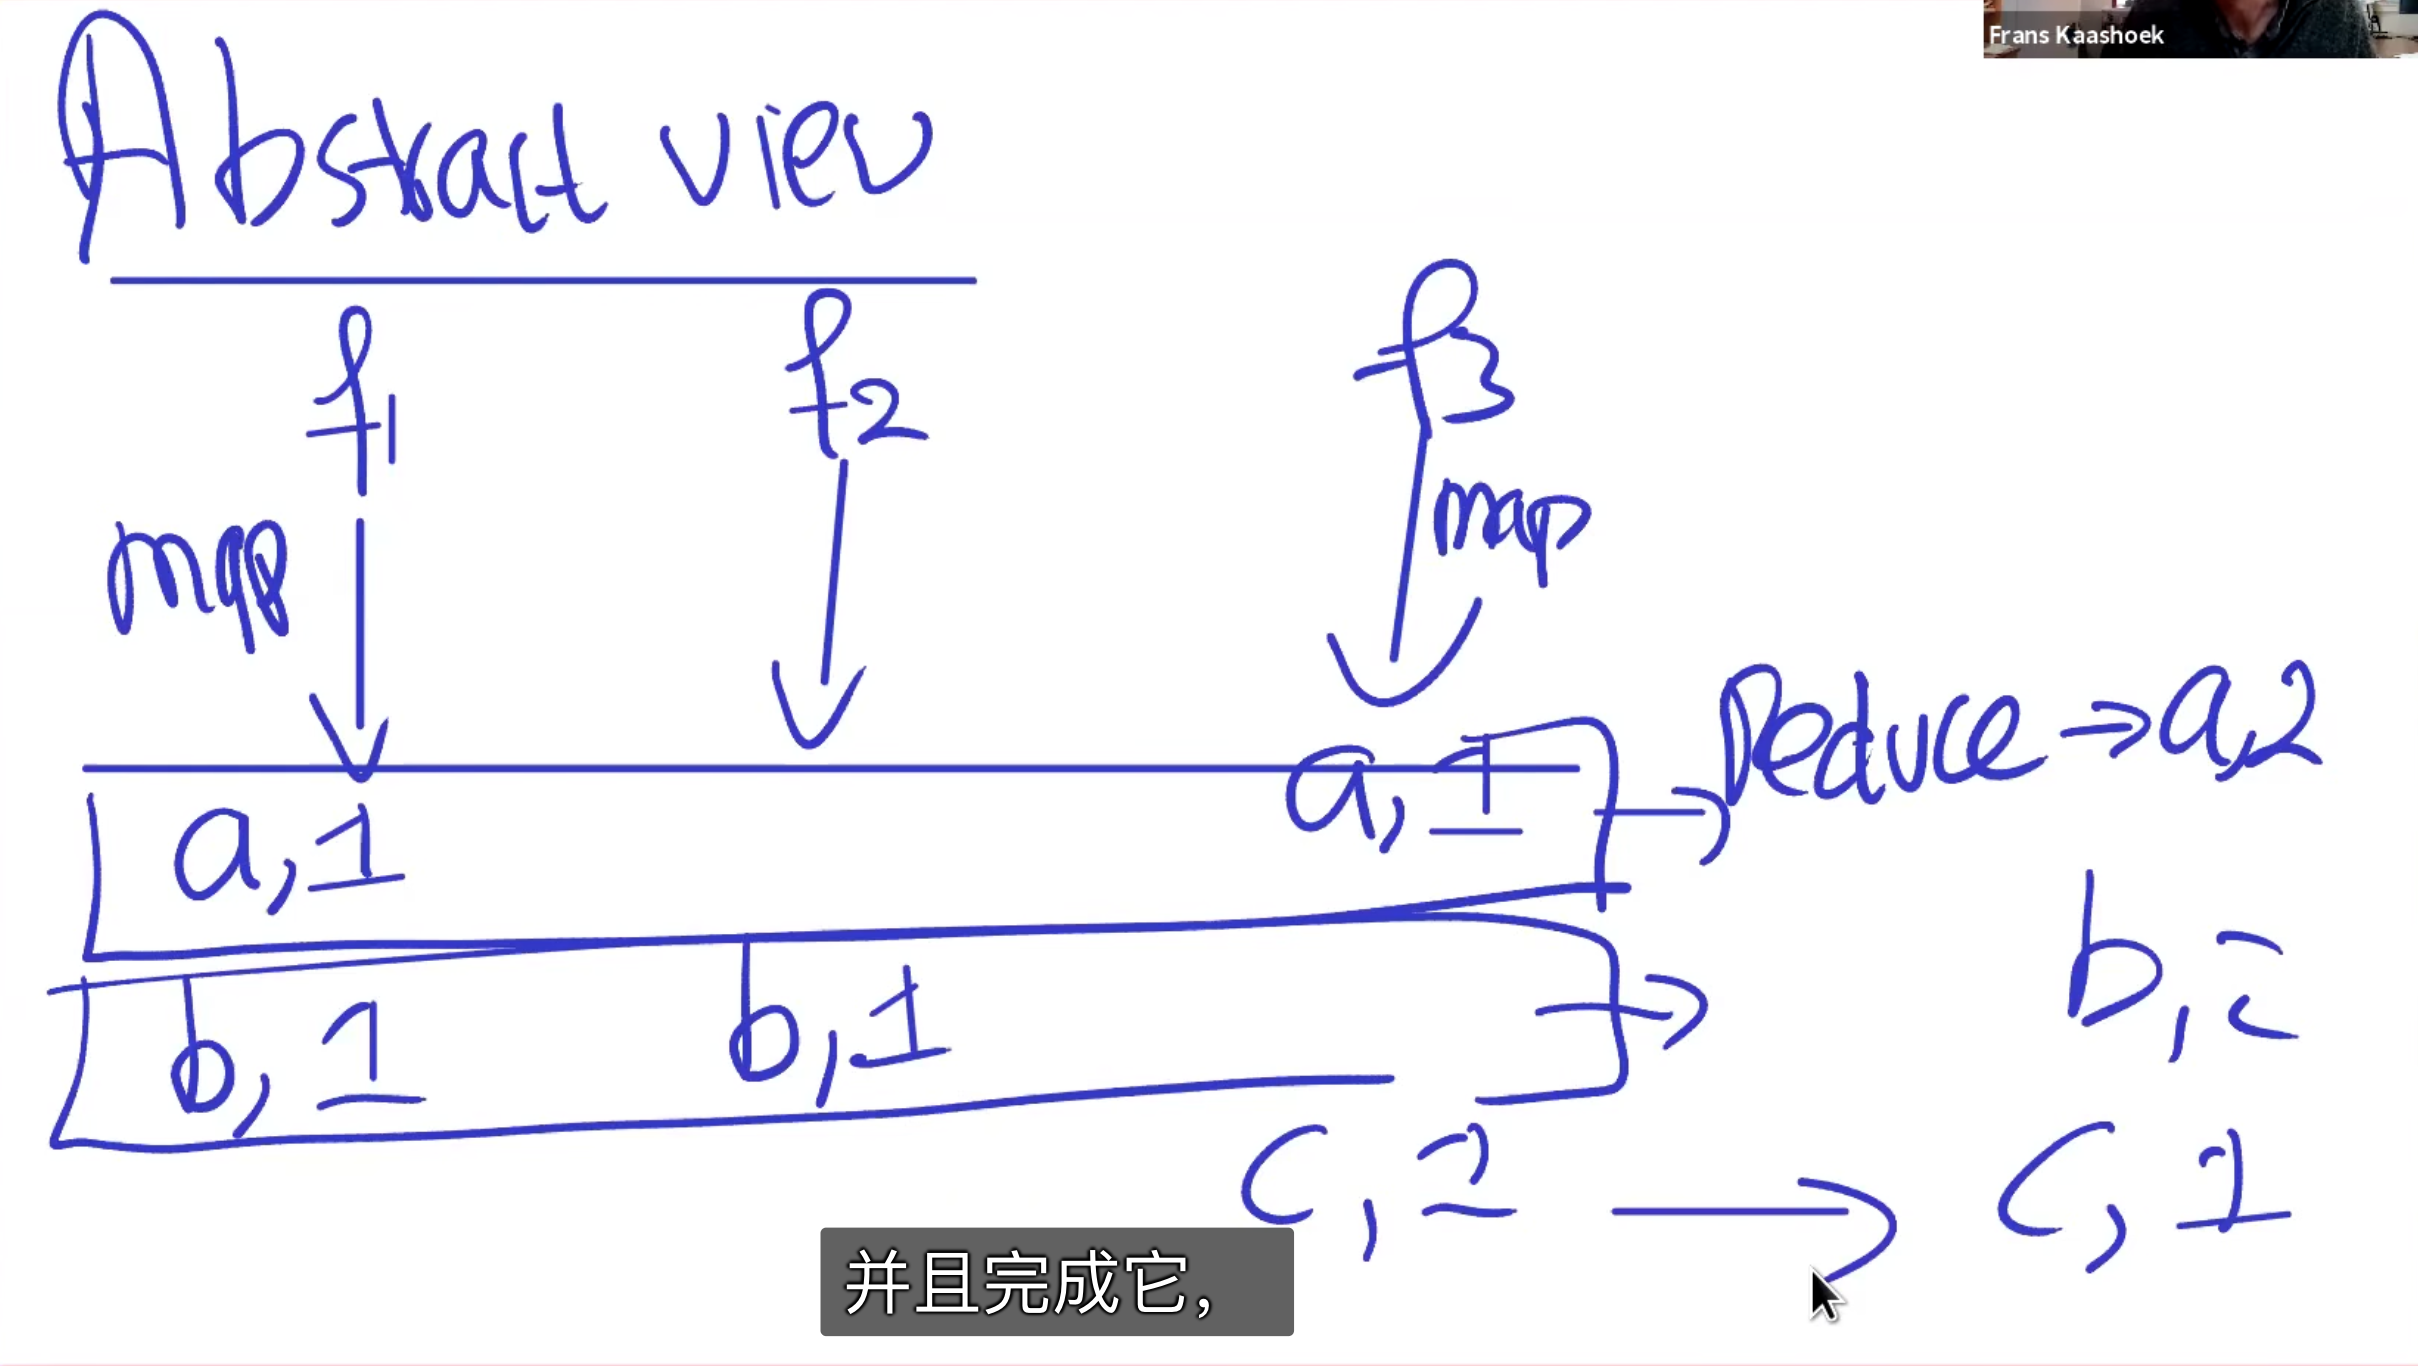 Frans Kaashoek
Abstract view
f1 f2 f3
map map
Reduce → a,2
a,1 a,1
b,1 b,1 b,2
c,2 c,1
并且完成它,